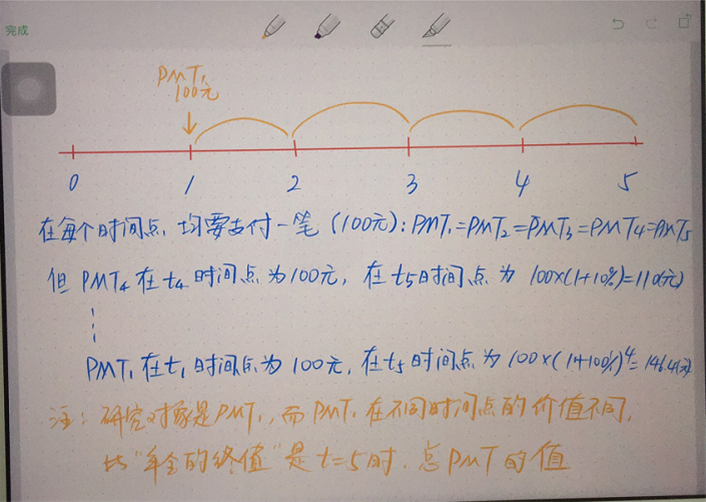 完成
PMT₁
100元
0 1 2 3 4 5
在每个时间点,均要支付一笔(100元):PMT₁=PMT₂=PMT₃=PMT₄=PMT₅
但 PMT₄ 在t₄时间点为100元,在t₅时间点为 100×(1+10%)=110(元)
PMT₁ 在t₁时间点为100元,在t₅时间点为100×(1+100%)⁴=146.41(元)
注:研究对象是PMT₁,而PMT₁在不同时间点的价值不同,
"年金的终值"是t=5时,总PMT的值